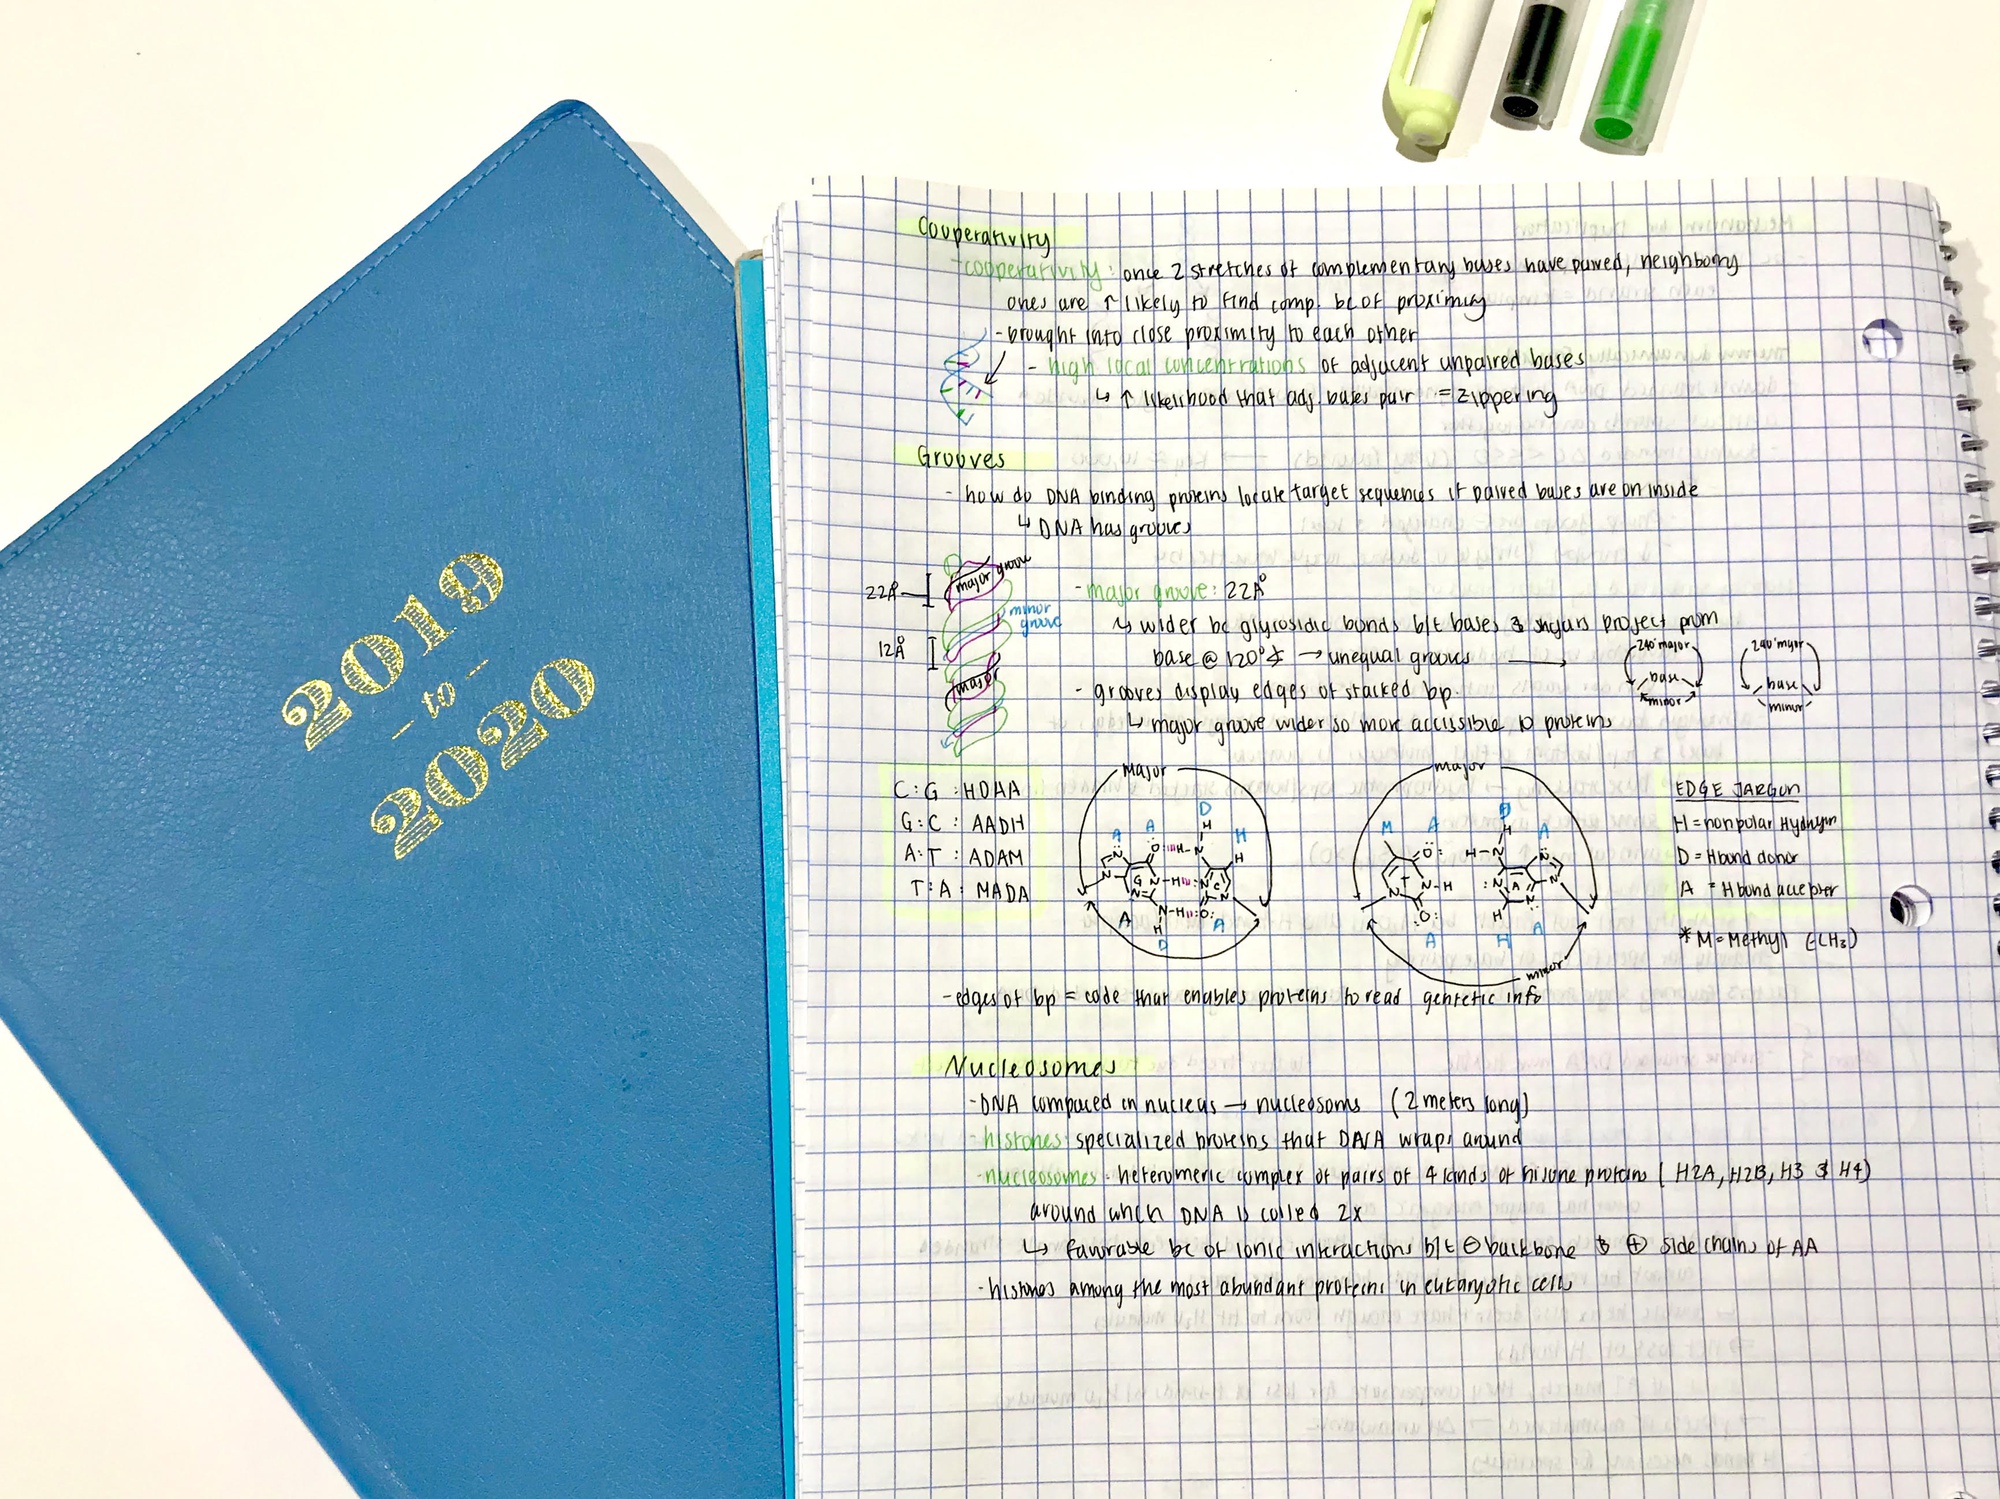 2019
to
2020
Cooperativity
-cooperativity: once 2 stretches of complementary bases have paired, neighboring
ones are ↑ likely to find comp. bc of proximity
-brought into close proximity to each other
- high local concentrations of adjacent unpaired bases
↳ ↑ likelihood that adj. bases pair = zippering
Grooves
- how do DNA binding proteins locate target sequences if paired bases are on inside
↳ DNA has grooves
22Å
major groove
minor groove
12Å
major
-major groove: 22Å
↳ wider bc glycosidic bonds b/t bases & sugars project from
base @ 120° ∡ → unequal grooves →
240° major
base
minor
240° major
base
minor
- grooves display edges of stacked bp.
↳ major groove wider so more accessible to proteins
C:G : HDAA
G:C : AADH
A:T : ADAM
T:A : MADA
Major
A A D H
N N O: H-N H H
G N-H :N C N
A N-H O: A
H
D
major
M A D A
O: H-N H N
T N-H :N A N
N O: H N:
A H A
minor
EDGE JARGON
H = nonpolar Hydrogen
D = H bond donor
A = H bond accepter
* M = Methyl (-CH₃)
-edges of bp = code that enables proteins to read genetic info
Nucleosomes
-DNA compaced in nucleus → nucleosoms (2 meters long)
-histones: specialized proteins that DNA wraps around
-nucleosomes: heteromeric complex of pairs of 4 kinds of hisone proteins (H2A, H2B, H3 & H4)
around which DNA is coiled 2x
↳ favorable bc of ionic interactions b/t ⊖ backbone & ⊕ side chains of AA
-histones among the most abundant proteins in eukaryotic cells